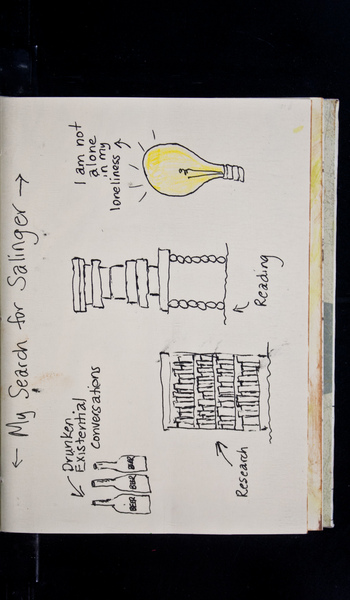 ← My Search for Salinger →
Drunken
Existential
conversations
BEER BEER BEER
Research
Reading
I am not
alone
in my
loneliness